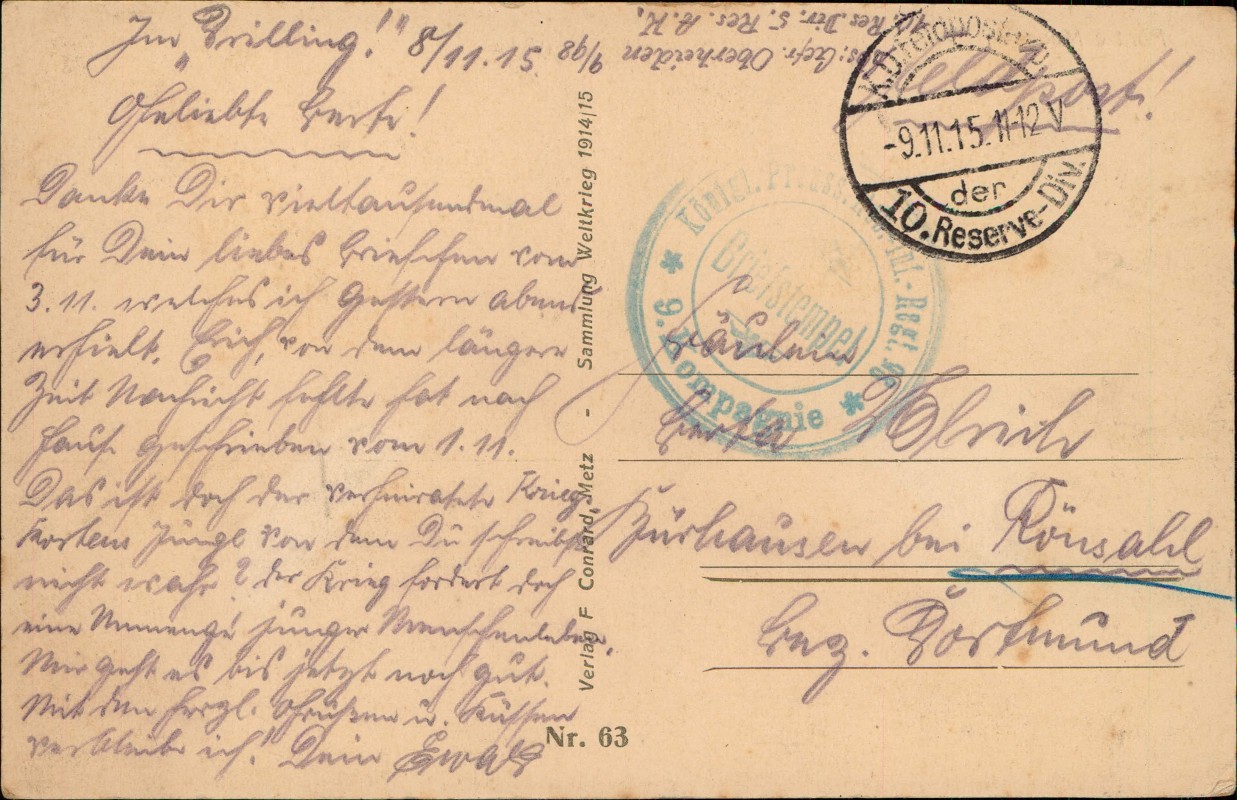 Im „Drilling!" 8/11.15
Geliebte Berta!
Danke Dir vieltausendmal
für Dein liebes Briefchen vom
3.11. welches ich gestern abend
erhielt. Erich, von dem längere
Zeit Nachricht fehlte hat nach
Hause geschrieben vom 1.11.
Das ist doch der verheiratete
Junge von dem Du schreibst
nicht wahr? Der Krieg fordert doch
eine Unmenge junger Menschenleben.
Mir geht es bis jetzt noch gut.
Mit den herzl. Grüßen u. Küssen
verbleibe ich! Dein Ewald
Verlag F Conrard, Metz - Sammlung Weltkrieg 1914|15
Nr. 63
Abs: Gefr. Oberheiden 9/98
Res. Div. 5. Res. A. K.
Feldpost!
K.D. Feldpostexp.
-9.11.15.11-12 V
der
10. Reserve-Div.
Königl. Preuss. Res. Inf.-Regt.
Briefstempel
* 9. Kompagnie *
Fräulein
Berta
bei Rönsahl
Bez. Dortmund